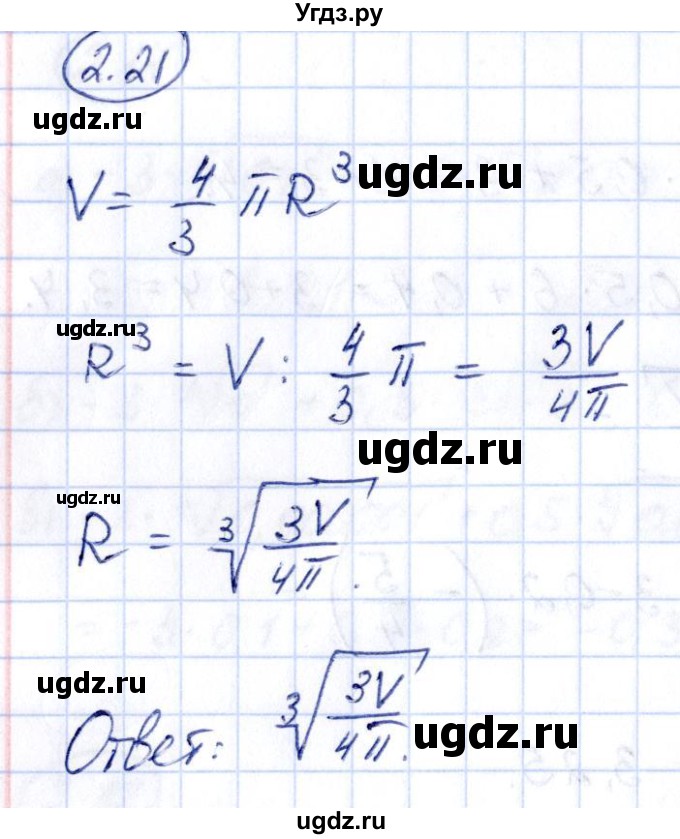 Угдз.ру
2.21
ugdz.ru
V = 4/3 πR³ ugdz.ru
ugdz.ru
R³ = V : 4/3 π = 3V/4π
ugdz.ru
ugdz.ru
R = ∛(3V/4π).
ugdz.ru
Ответ: ∛(3V/4π).
ugdz.ru
ugdz.ru